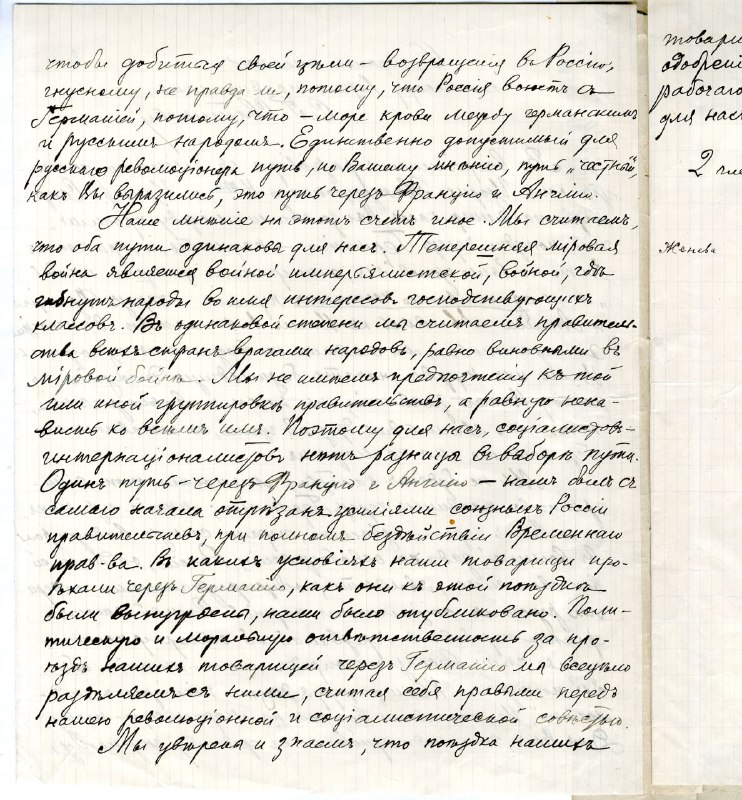 чтобы добиться своей цѣли – возвращенія въ Россію,
гнусному, не правда ли, потому, что Россія воюетъ съ
Германіей, потому, что – море крови между германскимъ
и русскимъ народомъ. Единственно допустимый для
русскаго революціонера путь, по Вашему мнѣнію, путь „честный",
какъ Вы выразились, это путь черезъ Францію и Англію.
Наше мнѣніе на этотъ счетъ иное. Мы считаемъ,
что оба пути одинаковы для насъ. Теперешняя міровая
война является войной имперьялистской, войной, гдѣ
гибнутъ народы во имя интересовъ господствующихъ
классовъ. Въ одинаковой степени мы считаемъ правитель-
ства всѣхъ странъ врагами народовъ, равно виновными въ
міровой бойнѣ. Мы не имѣемъ предпочтенія къ той
или иной группировкѣ правительствъ, а равную нена-
висть ко всѣмъ имъ. Поэтому для насъ, соціалистовъ-
интернаціоналистовъ нѣтъ разницы въ выборѣ пути.
Одинъ путь – черезъ Францію и Англію – намъ былъ съ
самаго начала отрѣзанъ усиліями союзныхъ Россіи
правительствъ, при полномъ бездѣйствіи Временнаго
прав-ва. Въ какихъ условіяхъ наши товарищи про-
ѣхали черезъ Германію, какъ они къ этой поѣздкѣ
были вынуждены, нами было опубликовано. Поли-
тическую и моральную отвѣтственность за про-
ѣздъ нашихъ товарищей черезъ Германію мы всецѣло
раздѣляемъ съ ними, считая себя правыми передъ
нашею революціонной и соціалистической совѣстью.
Мы увѣрены и знаемъ, что поѣздка нашихъ
товари
одобрені
рабочаго
для нас
2
Женева